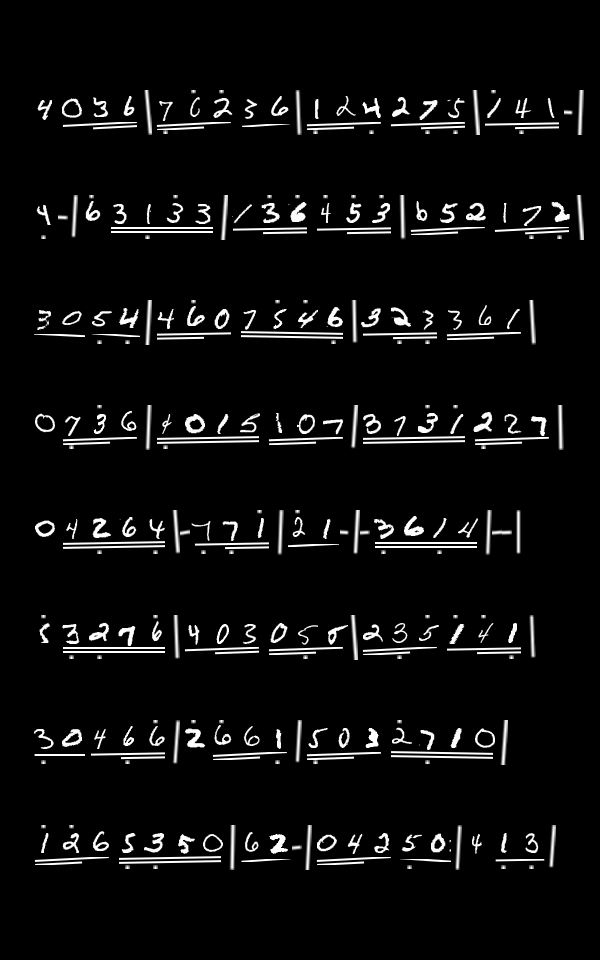 4 0 3 6 | 7 6 2 3 6 | 1 2 4 2 7 5 | 1 4 1 - |
4 - | 6 3 1 3 3 | 1 3 6 4 5 3 | 6 5 2 1 7 2 |
3 0 5 4 | 4 6 0 7 5 4 6 | 3 2 3 3 6 1 |
0 7 3 6 | 4 0 1 5 1 0 7 | 3 7 3 1 2 2 7 |
0 4 2 6 4 | - 7 7 1 | 2 1 - | - 3 6 1 4 | - |
5 3 2 7 6 | 4 0 3 0 5 5 | 2 3 5 1 4 1 |
3 0 4 6 6 | 2 6 6 1 | 5 0 3 2 7 1 0 |
1 2 6 5 3 5 0 | 6 2 - | 0 4 2 5 0 | 4 1 3 |